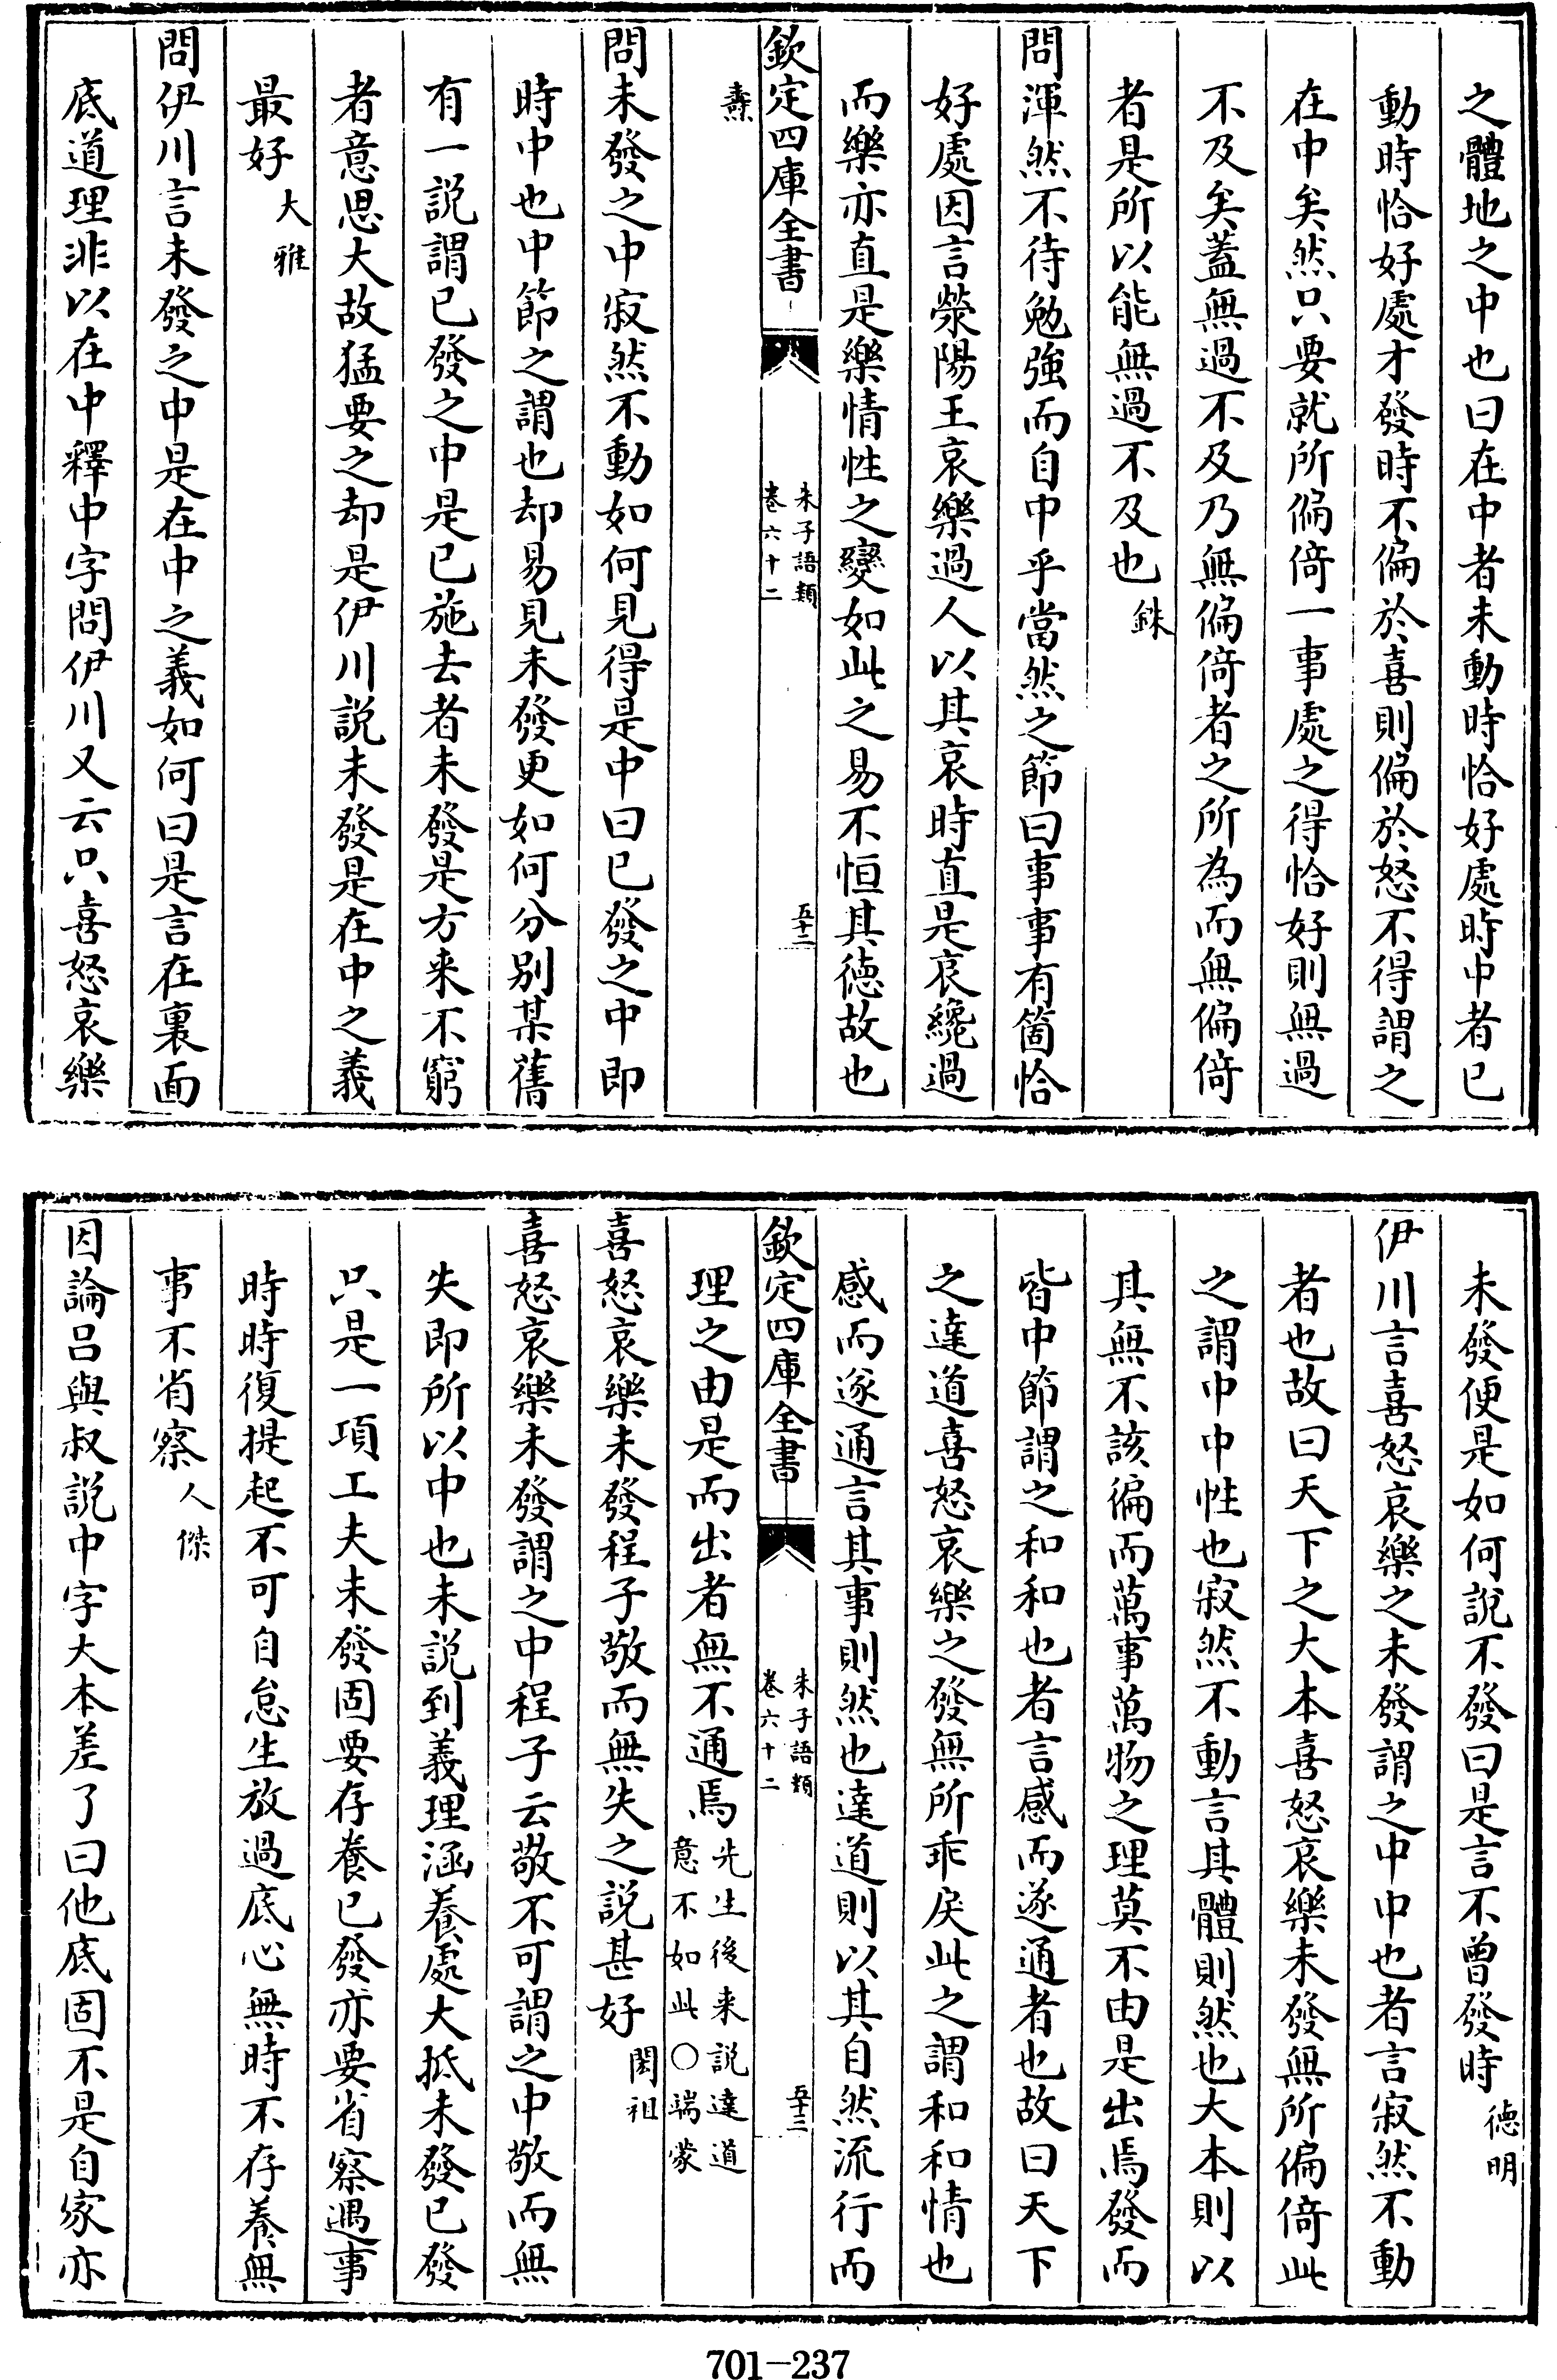 之體地之中也曰在中者未動時恰好處時中者已
動時恰好處才發時不偏於喜則偏於怒不得謂之
在中矣然只要就所偏倚一事處之得恰好則無過
不及矣蓋無過不及乃無偏倚者之所為而無偏倚
者是所以能無過不及也銖
問渾然不待勉強而自中乎當然之節曰事事有箇恰
好處因言滎陽王哀樂過人以其哀時直是哀纔過
而樂亦直是樂情性之變如此之易不恒其德故也
欽定四庫全書
朱子語類
卷六十二
五十二
𤋮
問未發之中寂然不動如何見得是中曰已發之中即
時中也中節之謂也却易見未發更如何分别某舊
有一説謂已發之中是已施去者未發是方来不窮
者意思大故猛要之却是伊川説未發是在中之義
最好大雅
問伊川言未發之中是在中之義如何曰是言在裏面
底道理非以在中釋中字問伊川又云只喜怒哀樂
未發便是如何說不發曰是言不曾發時德明
伊川言喜怒哀樂之未發謂之中中也者言寂然不動
者也故曰天下之大本喜怒哀樂未發無所偏倚此
之謂中中性也寂然不動言其體則然也大本則以
其無不該徧而萬事萬物之理莫不由是出焉發而
皆中節謂之和和也者言感而遂通者也故曰天下
之達道喜怒哀樂之發無所乖戾此之謂和和情也
感而遂通言其事則然也達道則以其自然流行而
欽定四庫全書
朱子語類
卷六十二
五十三
理之由是而出者無不通焉先生後来説達道
意不如此○端蒙
喜怒哀樂未發程子敬而無失之説甚好閎祖
喜怒哀樂未發謂之中程子云敬不可謂之中敬而無
失即所以中也未説到義理涵養處大抵未發已發
只是一項工夫未發固要存養已發亦要省察遇事
時時復提起不可自怠生放過底心無時不存養無
事不省察人傑
因論吕與叔説中字大本差了曰他底固不是自家亦
701—237